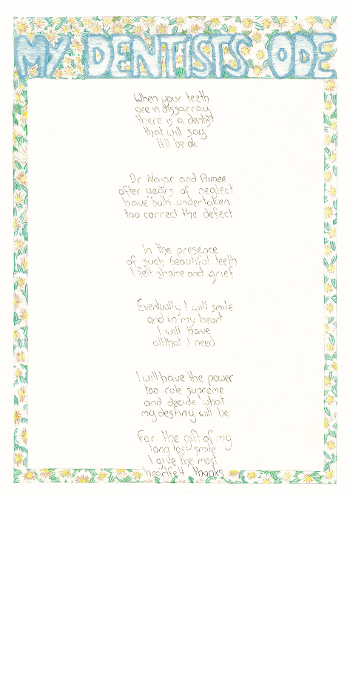 MY DENTISTS ODE
When your teeth
are in dissarray
there is a dentist
that will say
it'll be ok
Dr and Aimee
after years of neglect
have both undertaken
too correct the defect
In the presence
of such beautiful teeth
I felt shame and grief
Eventually I will smile
and in my heart
I will have
all that I need
I will have the power
too rule supreme
and decide what
my destiny will be
For the gift of my
long lost smile
I give the most
heartfelt thanks